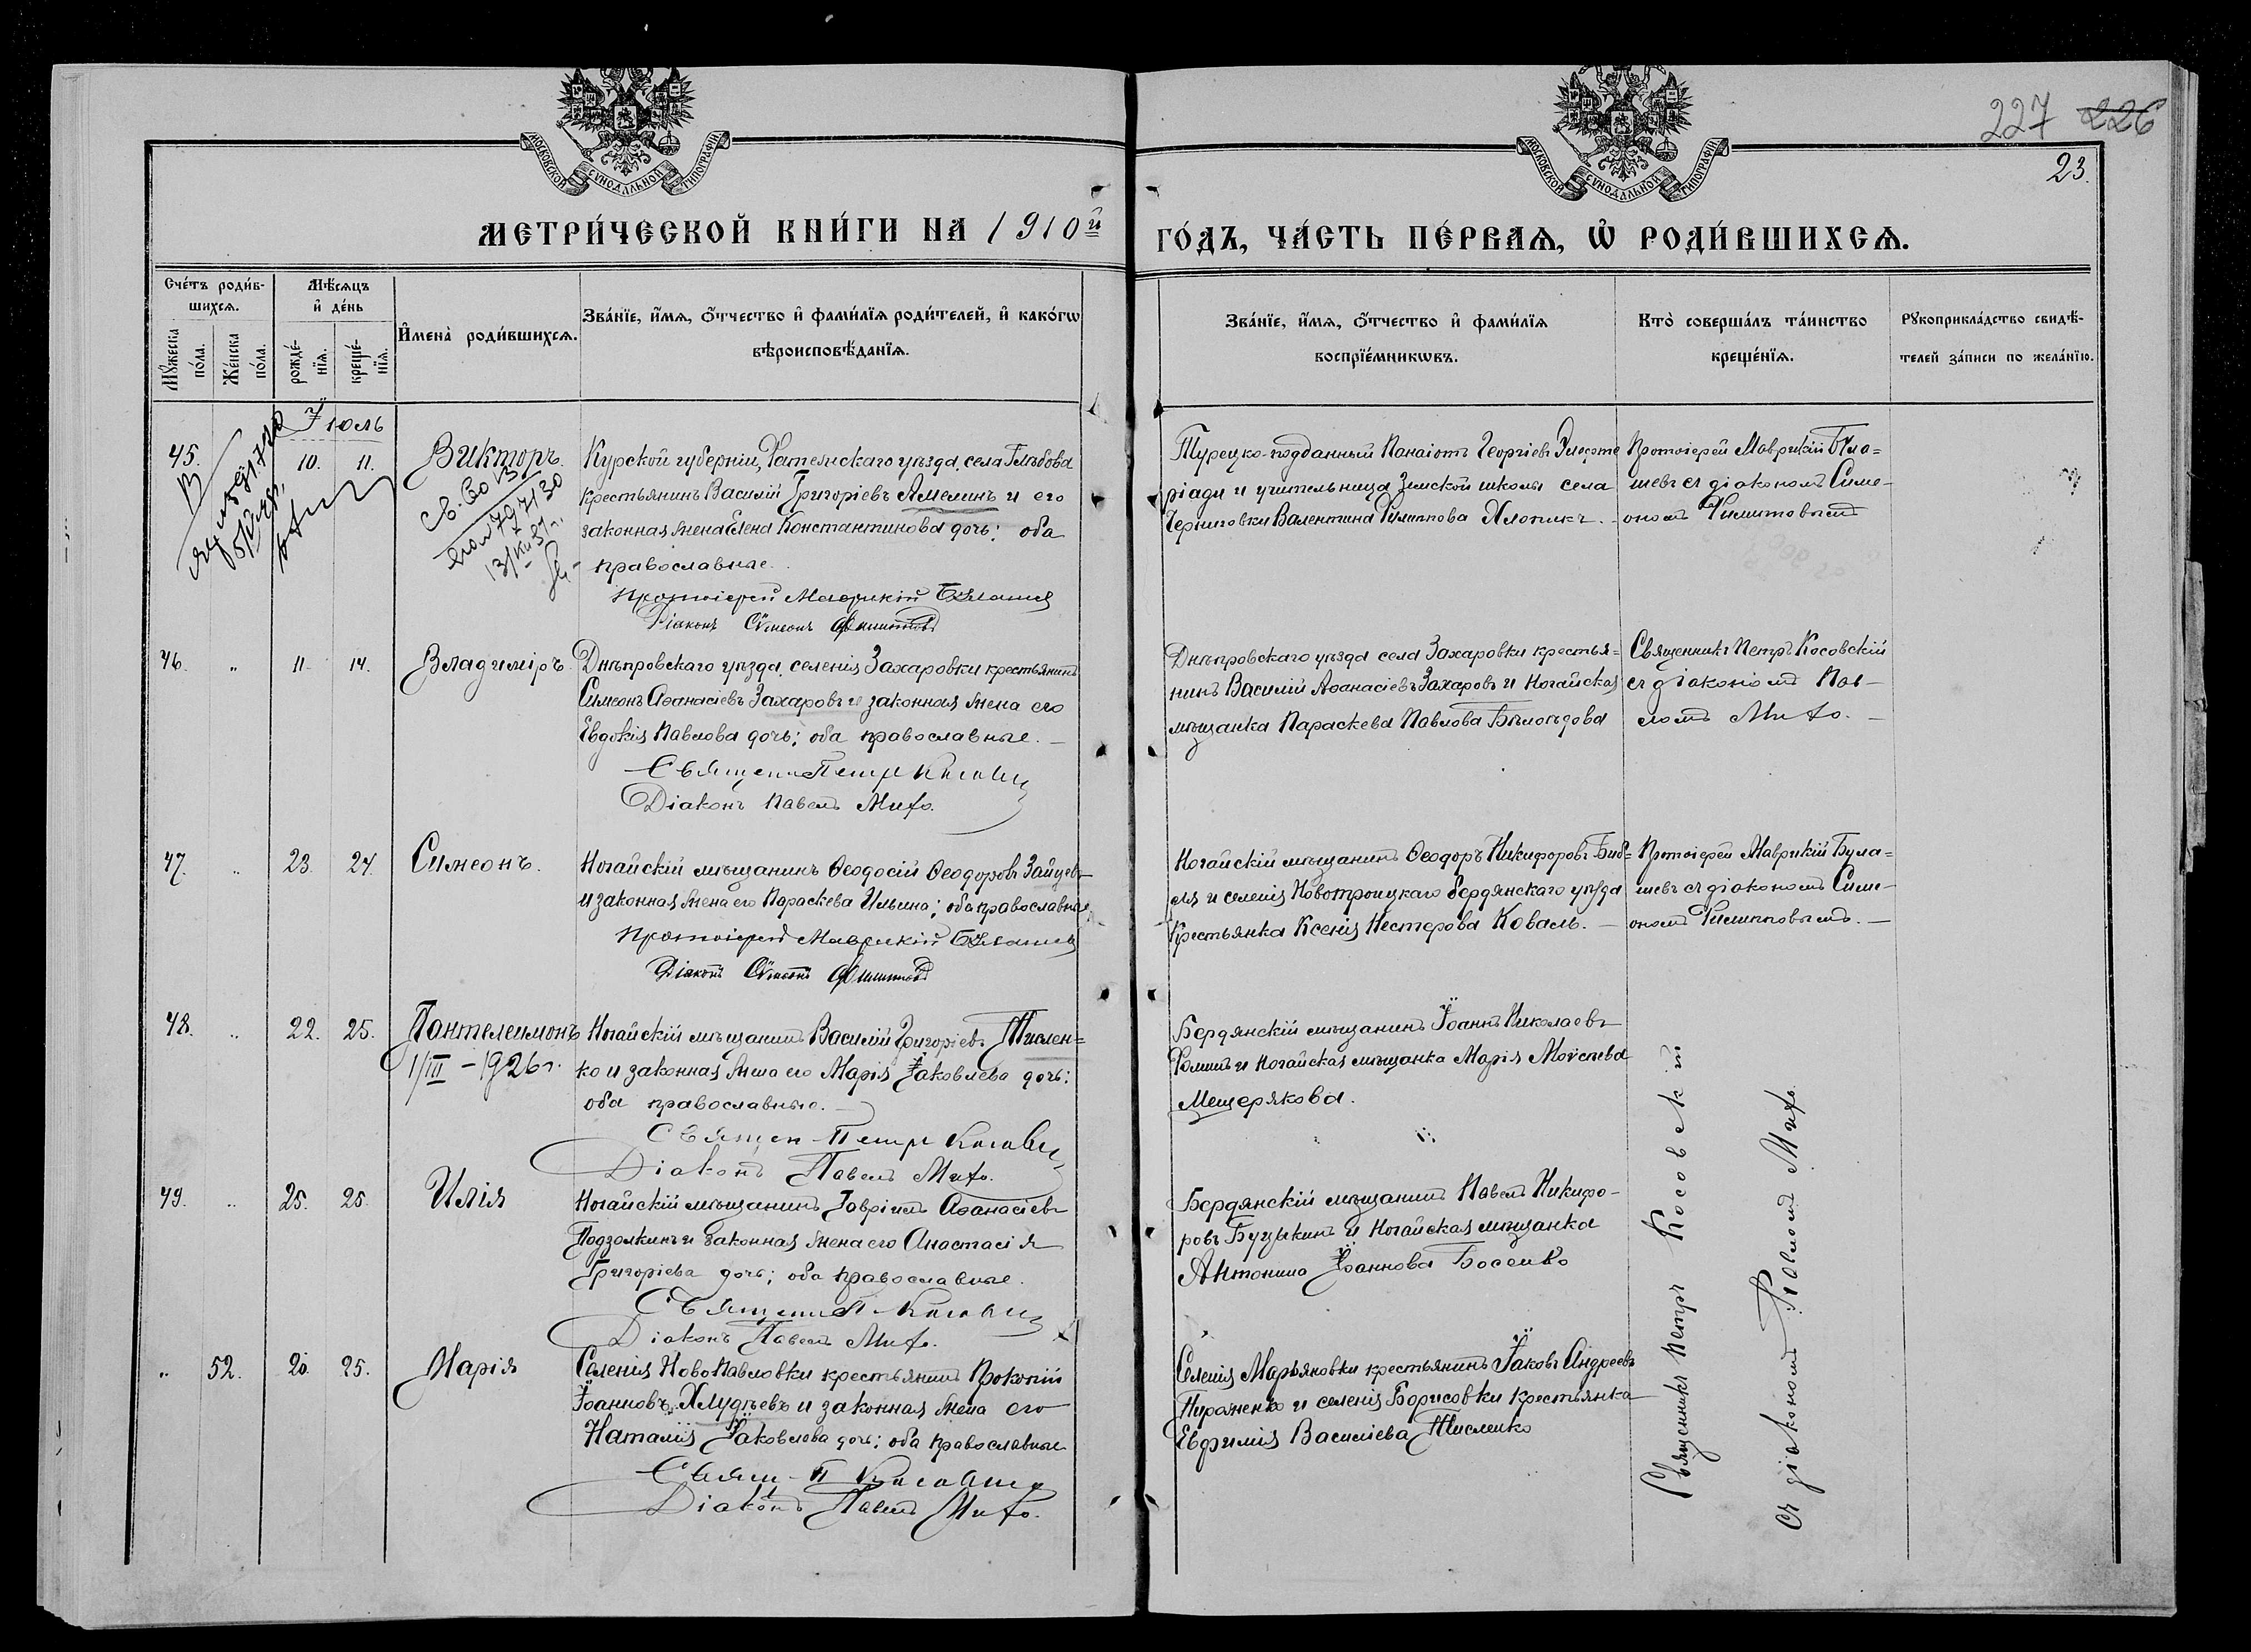 МОСКОВСКОЙ СѴНОДАЛЬНОЙ ТИПОГРАФІИ
МОСКОВСКОЙ СѴНОДАЛЬНОЙ ТИПОГРАФІИ
227 226
23.
МЕТРИ́ЧЕСКОЙ КНИ́ГИ НА 1910й
ГО́ДЪ, ЧА́СТЬ ПЕ́РВАѦ, Ѡ РОДИ́ВШИХСѦ.
Сче́тъ роди́в-
шихсѧ.
Мꙋ́жеска по́ла.
Же́нска по́ла.
Мѣ́сѧцъ
и҆ де́нь
рожде́-
нїѧ.
креще́-
нїѧ.
И҆мена̀ роди́вшихсѧ.
Зва́нїе, и҆́мѧ, ѻ҆́тчество и҆ фами́лїѧ роди́телей, и҆ како́гѡ
вѣроисповѣ́данїѧ.
Зва́нїе, и҆́мѧ, ѻ҆́тчество и҆ фами́лїѧ
воспрїе́мникѡвъ.
Кто̀ соверша́лъ та́инство
креще́нїѧ.
Рꙋкоприкла́дство свидѣ́-
телей за́писи по жела́нїю.
Іюль
45.
10. 11.
Викторъ.
Курской губерніи, Фатежскаго уѣзда, села Глѣбова
крестьянинъ Василій Григоріевъ Амелинъ и его
законная жена Елена Константинова дочь; оба
православные.
Протоіерей Маврикій Булашев
Діаконъ Сѵмеонъ Филиппов
Турецко-подданный Панаіотъ Георгіевъ
ріади и учительница Земской школы села
Черниговки Валентина Филиппова Хлопикъ.
Протоіерей Маврикій Була=
шевъ съ діакономъ Симе-
ономъ Филипповымъ
46. „ 11. 14.
Владиміръ
Днѣпровскаго уѣзда, селенія Захаровки крестьянинъ
Симеонъ Аѳанасіевъ Захаровъ и законная жена его
Евдокія Павлова дочь; оба православные.
Священ Петръ Косовскій
Діаконъ Павелъ Михо.
Днѣпровскаго уѣзда села Захаровки крестья=
нинъ Василій Аѳанасіевъ Захаровъ и Ногайская
мѣщанка Параскева Павлова Бѣлоѣдова
Священникъ Петръ Косовскій
съ діакономъ Пав-
ломъ Михо.
47. „ 23. 24.
Симеонъ.
Ногайскій мѣщанинъ Ѳеодосій Ѳеодоровъ Зайцевъ
и законная жена его Параскева Ильина; оба православные
Протоіерей Маврикій Булашев
Діаконъ Сѵмеонъ Филиппов
Ногайскій мѣщанинъ Ѳеодоръ Никифоровъ
и селенія Новотроицкаго бердянскаго уѣзда
крестьянка Ксенія Нестерова Коваль.
Протоіерей Маврикій Була=
шевъ съ діакономъ Симе-
ономъ Филипповымъ.
48. „ 22. 25.
Пантелеимонъ
1/III – 1926 г.
Ногайскій мѣщанинъ Василій Григоріевъ Тислен=
ко и законная жена его Марія Іаковлева дочь;
оба православные.
Священ Петръ Косовскій
Діаконъ Павелъ Михо.
Бердянскій мѣщанинъ Іоаннъ Николаевъ
Фоминъ и Ногайская мѣщанка Марія Моѵсеева
Мещерякова.
49. „ 25. 25.
Илія
Ногайскій мѣщанинъ Гавріилъ Аѳанасіевъ
Подзолкинъ и законная жена его Анастасія
Григоріева дочь; оба православные.
Священ П. Косовскій
Діаконъ Павелъ Михо.
Бердянскій мѣщанинъ Павелъ Никифо-
ровъ Буцыкинъ и Ногайская мѣщанка
Антонина Іоаннова Босенко
„ 52. 25.
Марія
Селенія Новопавловки крестьянинъ Прокопій
Іоанновъ Хлудѣевъ и законная жена его
Наталія Іаковлева дочь; оба православные
Свящ. П Косовскій
Діаконъ Павелъ Михо.
Селенія Марьяновки крестьянинъ Іаковъ Андреевъ
Пироженко и селенія Борисовки крестьянка
Евфимія Василіева Тисленко
Священникъ Петръ Косовскій
съ діакономъ Павломъ Михо.